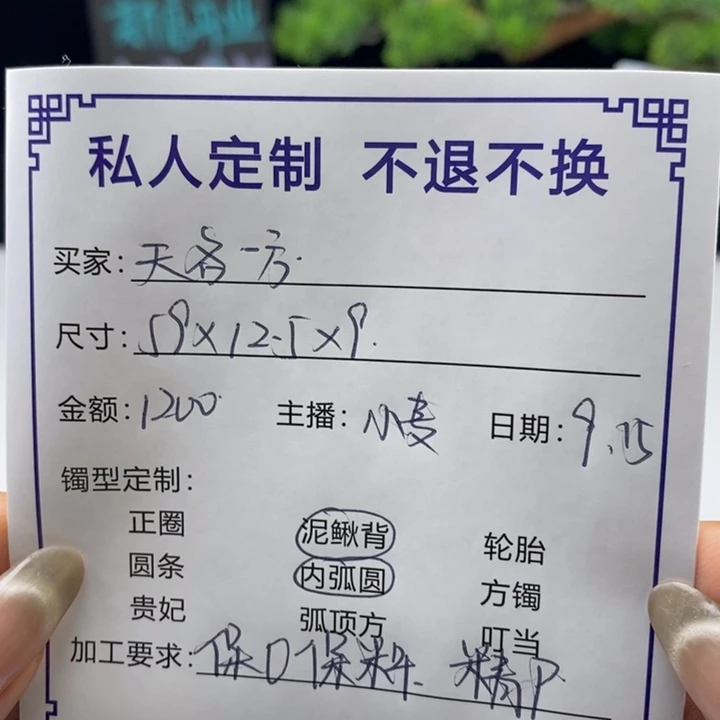 私人定制 不退不换
买家: 天各一方.
尺寸: 59×12.5×9.
金额: 1200 主播: 小麦 日期: 9.15
镯型定制:
正圈 泥鳅背 轮胎
圆条 内弧圆 方镯
贵妃 弧顶方 叮当
加工要求: 保口保料. 精P